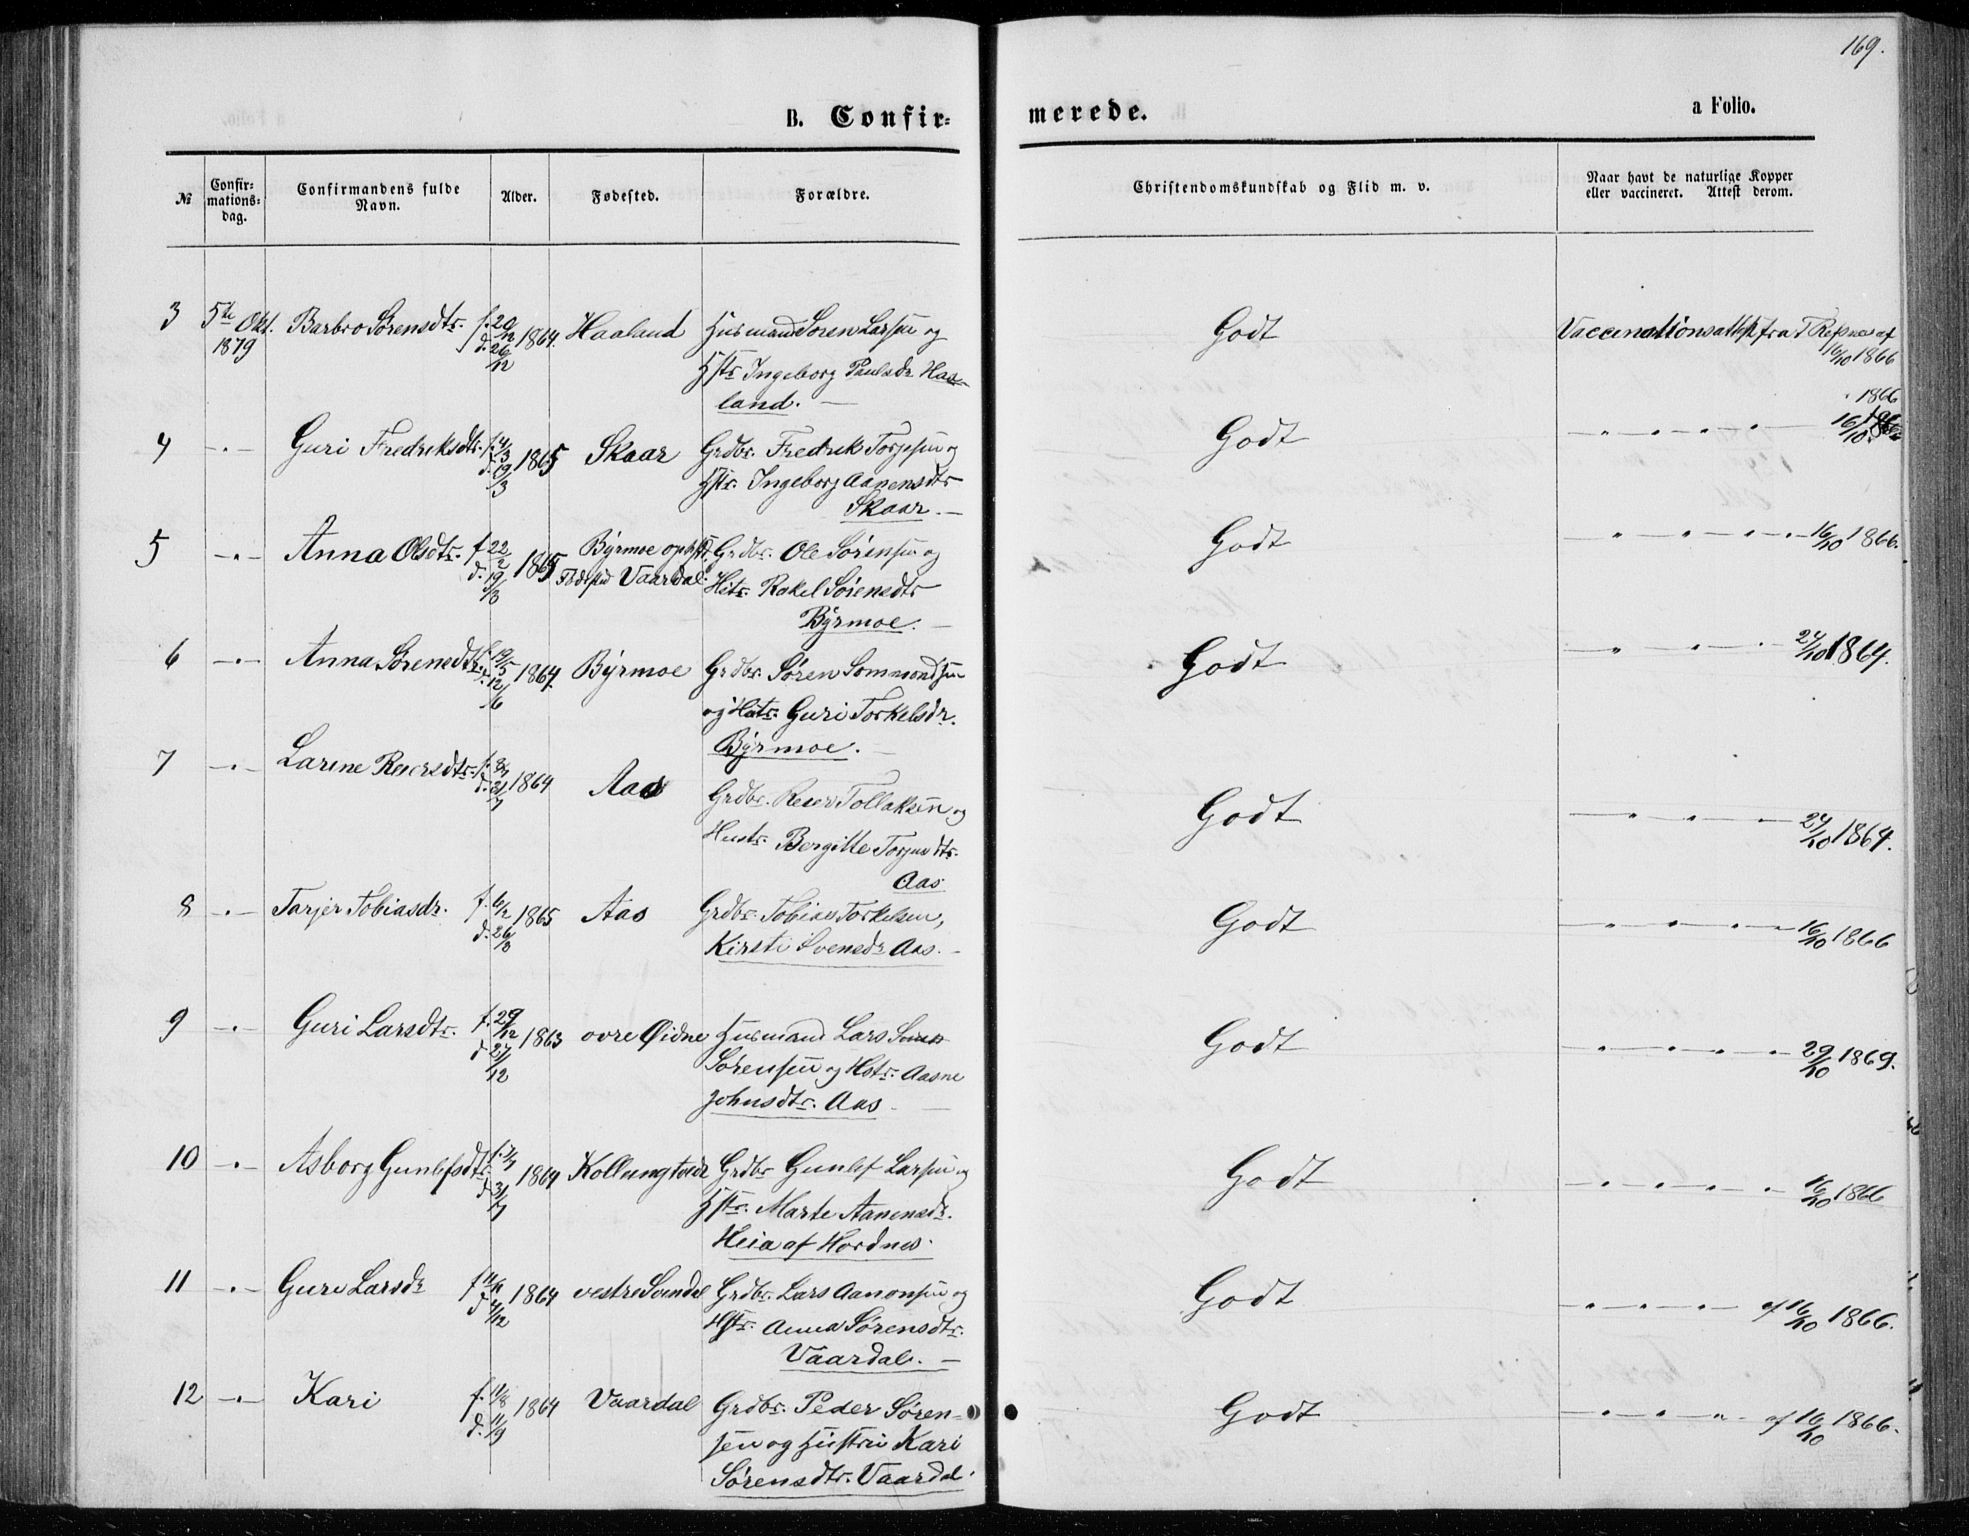 169.
B. Confir-
merede.
a Folio.
№
Confir-
mations-
dag.
Confirmandens fulde
Navn.
Alder.
Fødested.
Forældre.
Christendomskundskab og Flid m. v.
Naar havt de naturlige Kopper
eller vaccineret. Attest derom.
3 5te Okt. 1879 Barbro Sørensdtr. f. 20/12 d. 26/12 1864. Haaland
Husmand Søren Larsen og
Hstr. Ingeborg Paulsdr. Haa-
land. —
Godt
Vaccinationsattest fra T. Refsnes af
16/10 1866
4 -"- Guri Fredriksdtr. f. 4/3 d. 19/3 1865 Skaar
Grdbr. Fredrik Torjesen og
Hstr. Ingeborg Aanensdtr
Skaar. —
Godt
-"-"-"-"- 16/10 1866
5 -"- Anna Olsdtr. f. 22/2 d. 19/3 1865
Byrmoe
Fødested Vaardal.
Grdbr. Ole Sørensen og
Hstr. Rakel Sørensdtr
Byrmoe. —
Godt
-"-"-"-"- 16/10 1866.
6 -"- Anna Sørensdtr. f. 19/5 d. 12/6 1864. Byrmoe
Grdbr. Søren Sommundsen
og Hstr. Guri Torkelsdr.
Byrmoe. —
Godt
-"-"- 24/10 1864.
7 -"- Larine Reiersdtr. f. 8/7 d. 31/7 1864 Aas
Grdbr. Reier Tollaksen og
Hustr. Bergitte Torjusdtr.
Aas
Godt
-"-"- 24/10 1864.
8 -"- Tarjer Tobiasdr. f. 6/2 d. 26/3 1865 Aas
Grdbr. Tobias Torkelsen,
Kirsti Svensdr Aas. —
Godt
-"-"-"- 16/10 1866
9 -"- Guri Larsdtr. f. 29/12 d. 27/12 1863 øvre Øidne
Husmand Lars
Sørensen og Hstr. Aasne
Johnsdtr. Aas. —
Godt
-"-"-"-"- 29/10 1869.
10 -"- Asborg Gunlefsdtr. f. 7/7 d. 31/7 1864
Grdbr Gunlef Larsen og
Hstr. Marte Aanensdr.
Heia af Hordnes.
Godt
-"-"-"-"- 16/10 1866
11 -"- Guri Larsdr f. 11/11 d. 4/12 1864 vestre Svindal
Grdbr. Lars Aanonsen og
Hstr. Anna Sørensdtr.
Vaardal. —
Godt
-"-"-"- af 16/10 1866.
12 -"- Kari f. 11/8 d. 11/9 1864 Vaardal
Grdbr. Peder Søren-
sen og Hustru Kari
Sørensdtr. Vaardal.
Godt
-"-"-"- af 16/10 1866.